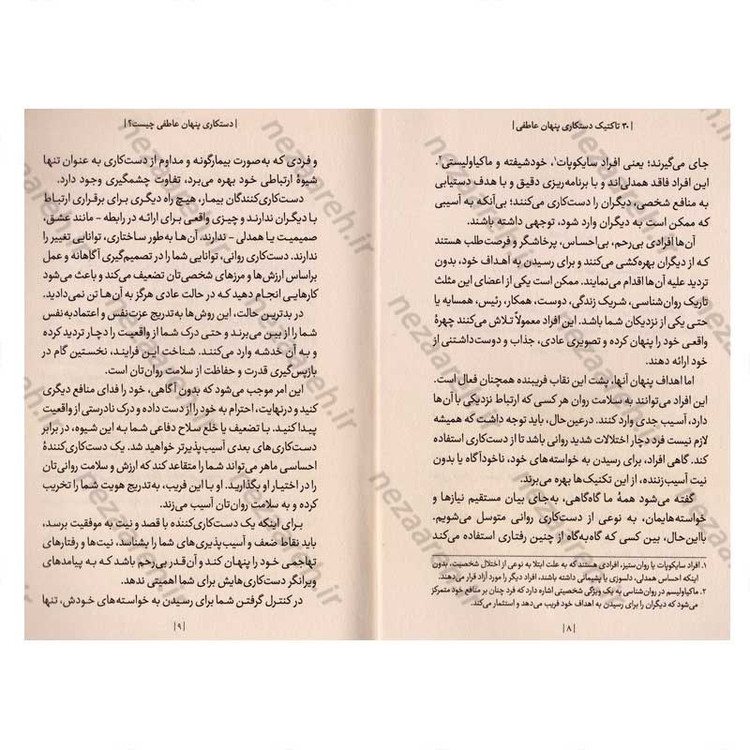 | ۳۰ تاکتیک دستکاری پنهان عاطفی |
جای می‌گیرند؛ یعنی افراد سایکوپات۱، خودشیفته و ماکیاولیستی۲.
این افراد فاقد همدلی‌اند و با برنامه‌ریزی دقیق و با هدف دستیابی
به منافع شخصی، دیگران را دست‌کاری می‌کنند؛ بی‌آنکه به آسیبی
که ممکن است به دیگران وارد شود، توجهی داشته باشند.
آن‌ها افرادی بی‌رحم، بی‌احساس، پرخاشگر و فرصت‌طلب هستند
که از دیگران بهره‌کشی می‌کنند و برای رسیدن به اهداف خود، بدون
تردید علیه آن‌ها اقدام می‌نمایند. ممکن است یکی از اعضای این مثلث
تاریک روان‌شناسی، شریک زندگی، دوست، همکار، رئیس، همسایه یا
حتی یکی از نزدیکان شما باشد. این افراد معمولاً تلاش می‌کنند چهرهٔ
واقعی خود را پنهان کرده و تصویری عادی، جذاب و دوست‌داشتنی از
خود ارائه دهند.
اما اهداف پنهان آنها، پشت این نقاب فریبنده همچنان فعال است.
این افراد می‌توانند به سلامت روان هر کسی که ارتباط نزدیکی با آن‌ها
دارد، آسیب جدی وارد کنند. درعین‌حال، باید توجه داشت که همیشه
لازم نیست فرد دچار اختلالات شدید روانی باشد تا از دست‌کاری استفاده
کند. گاهی افراد، برای رسیدن به خواسته‌های خود، ناخودآگاه یا بدون
نیت آسیب‌زننده، از این تکنیک‌ها بهره می‌برند.
گفته می‌شود همهٔ ما گاه‌گاهی، به‌جای بیان مستقیم نیازها و
خواسته‌هایمان، به نوعی از دست‌کاری روانی متوسل می‌شویم.
بااین‌حال، بین کسی که گاه‌به‌گاه از چنین رفتاری استفاده می‌کند
۱. افراد سایکوپات یا روان‌ستیز، افرادی هستند که به علت ابتلا به نوعی از اختلال شخصیت، بدون
اینکه احساس همدلی، دلسوزی یا پشیمانی داشته باشند، افراد دیگر را مورد آزار قرار می‌دهند.
۲. ماکیاولیسم در روان‌شناسی به یک ویژگی شخصیتی اشاره دارد که فرد چنان بر منافع خود متمرکز
می‌شود که دیگران را برای رسیدن به اهداف خود فریب می‌دهد و استثمار می‌کند.
| ۸ |
| دستکاری پنهان عاطفی چیست؟ |
و فردی که به‌صورت بیمارگونه و مداوم از دست‌کاری به عنوان تنها
شیوهٔ ارتباطی خود بهره می‌برد، تفاوت چشمگیری وجود دارد.
دست‌کاری‌کنندگان بیمار، هیچ راه دیگری برای برقراری ارتباط
با دیگران ندارند و چیزی واقعی برای ارائه در رابطه - مانند عشق،
صمیمیت یا همدلی - ندارند. آن‌ها به‌طور ساختاری، توانایی تغییر را
ندارند. دست‌کاری روانی، توانایی شما در تصمیم‌گیری آگاهانه و عمل
براساس ارزش‌ها و مرزهای شخصی‌تان تضعیف می‌کند و باعث می‌شود
کارهایی انجام دهید که در حالت عادی هرگز به آن‌ها تن نمی‌دادید.
در بدترین حالت، این روش‌ها به‌تدریج عزت‌نفس و اعتمادبه‌نفس
شما را از بین می‌برند و حتی درک شما از واقعیت را دچار تردید کرده
و به آن خدشه وارد می‌کنند. شناخت این فرایند، نخستین گام در
بازپس‌گیری قدرت و حفاظت از سلامت روان‌تان است.
این امر موجب می‌شود که بدون آگاهی، خود را فدای منافع دیگری
کنید و درنهایت، احترام به خود را از دست داده و درک نادرستی از واقعیت
پیدا کنید. با تضعیف یا خلع سلاح دفاعی شما به این شیوه، در برابر
دست‌کاری‌های بعدی آسیب‌پذیرتر خواهید شد. یک دست‌کاری‌کنندهٔ
احساسی ماهر می‌تواند شما را متقاعد کند که ارزش و سلامت روانی‌تان
را در اختیار او بگذارید. او با این فریب، به‌تدریج هویت شما را تخریب
کرده و به سلامت روان‌تان آسیب می‌زند.
برای اینکه یک دست‌کاری‌کننده با قصد و نیت به موفقیت برسد،
باید نقاط ضعف و آسیب‌پذیری‌های شما را بشناسد، نیت‌ها و رفتارهای
تهاجمی خود را پنهان کند و آن‌قدر بی‌رحم باشد که به پیامدهای
ویرانگر دست‌کاری‌هایش برای شما اهمیتی ندهد.
در کنترل گرفتن شما برای رسیدن به خواسته‌های خودش، تنها
| ۹ |
nezaareh.ir